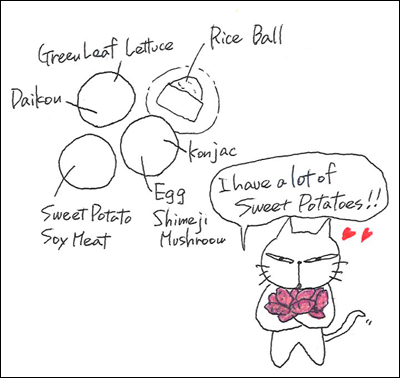 Green Leaf Lettuce
Rice Ball
Daikon
Konjac
Sweet Potato
Soy Meat
Egg
Shimeji
Mushroom
I have a lot of
Sweet Potatoes!!